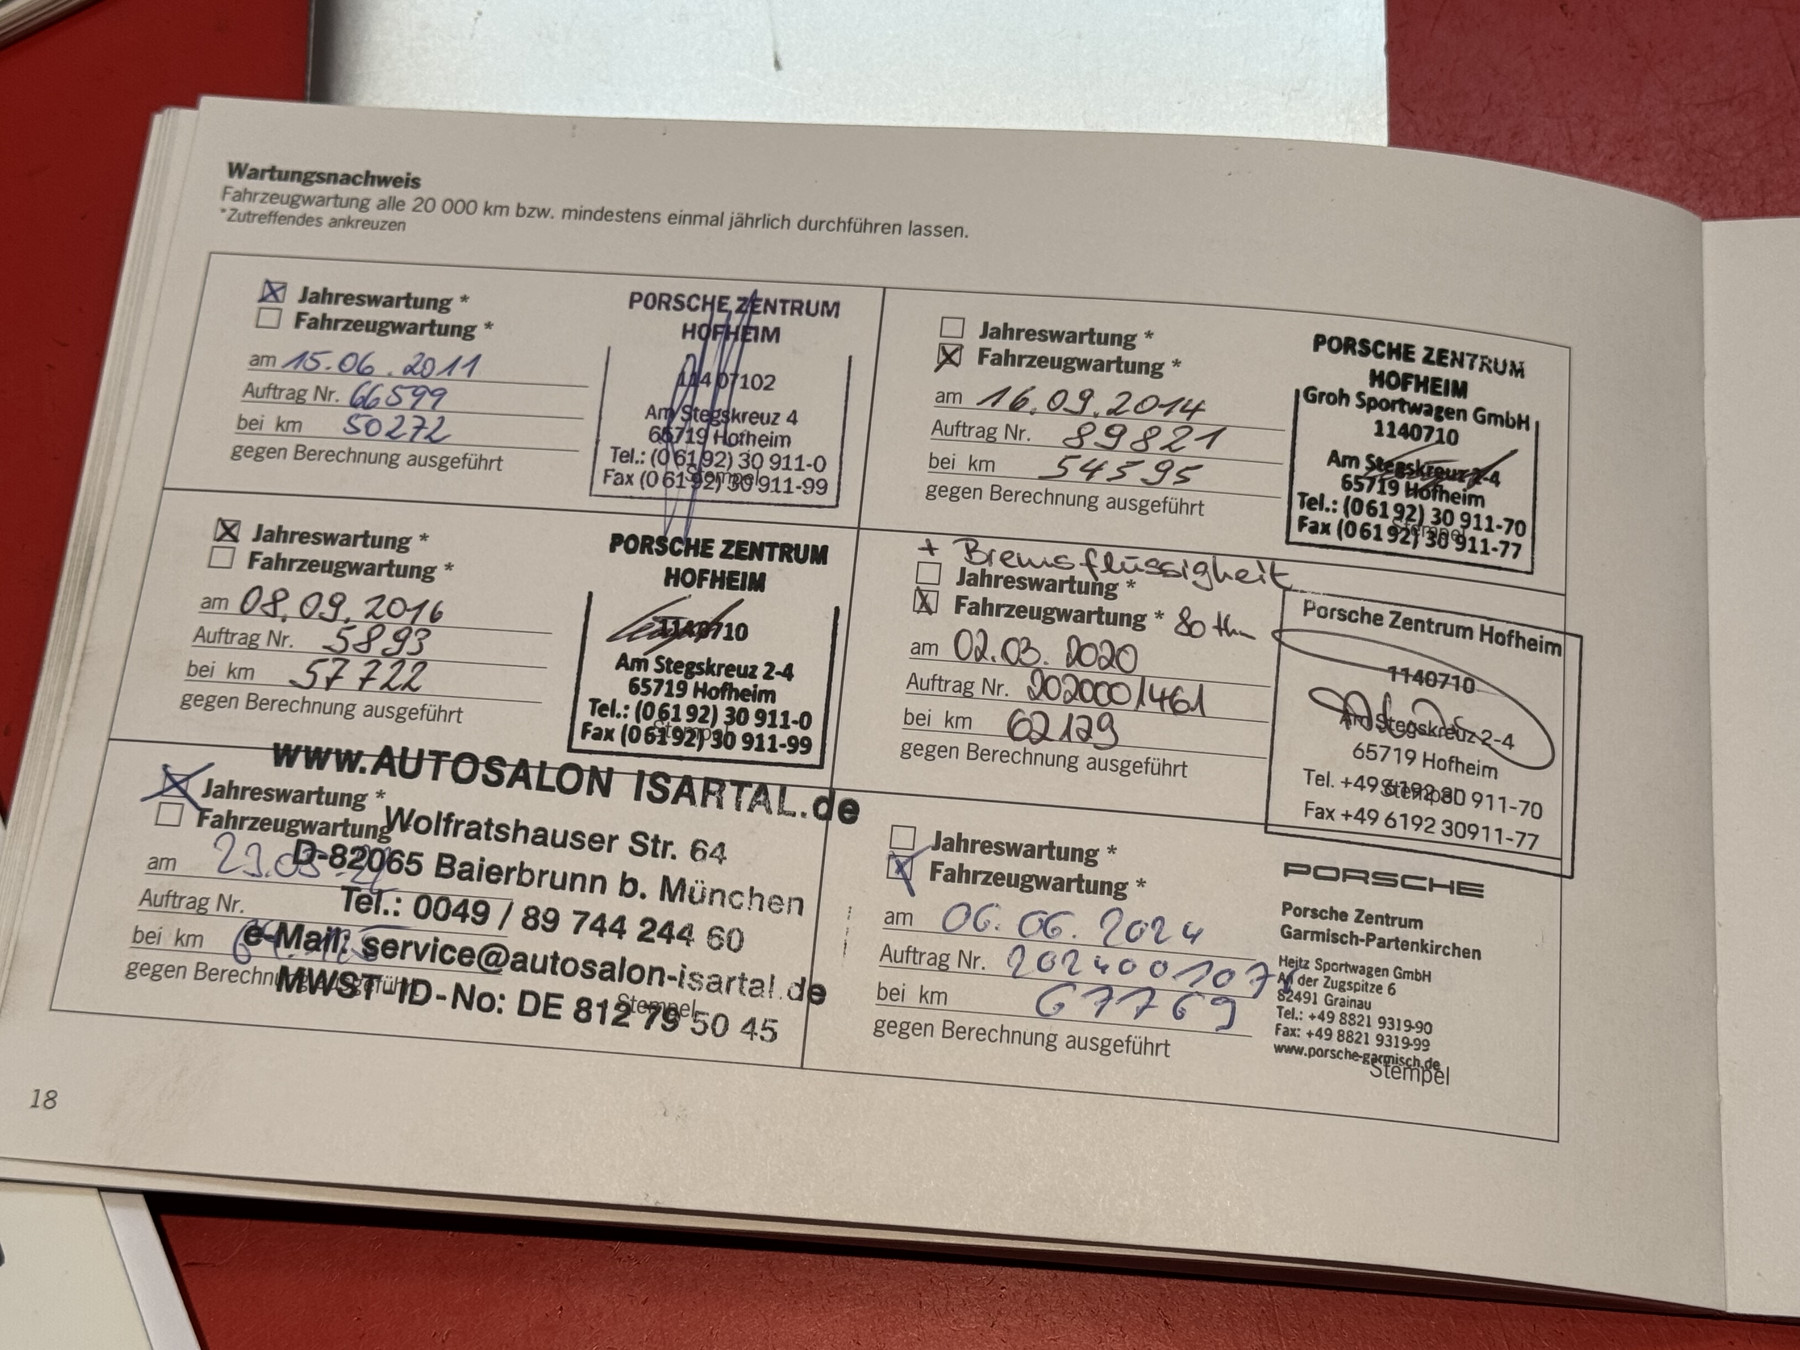 Wartungsnachweis
Fahrzeugwartung alle 20 000 km bzw. mindestens einmal jährlich durchführen lassen.
*Zutreffendes ankreuzen
Jahreswartung *
Fahrzeugwartung *
am 15.06.2011
Auftrag Nr. 66599
bei km 50272
gegen Berechnung ausgeführt
PORSCHE ZENTRUM
HOFHEIM
Am Stegskreuz 4
65719 Hofheim
Tel.: (0 61 92) 30 911-0
Fax (0 61 92) 30 911-99
Stempel
Jahreswartung *
Fahrzeugwartung *
am 16.09.2014
Auftrag Nr. 89821
bei km 54595
gegen Berechnung ausgeführt
PORSCHE ZENTRUM
HOFHEIM
Groh Sportwagen GmbH
1140710
Am Stegskreuz 2-4
65719 Hofheim
Tel.: (0 61 92) 30 911-70
Fax (0 61 92) 30 911-77
Stempel
Jahreswartung *
Fahrzeugwartung *
am 08.09.2016
Auftrag Nr. 5893
bei km 57722
gegen Berechnung ausgeführt
PORSCHE ZENTRUM
HOFHEIM
1140710
Am Stegskreuz 2-4
65719 Hofheim
Tel.: (0 61 92) 30 911-0
Fax (0 61 92) 30 911-99
Stempel
+ Bremsflüssigkeit
Jahreswartung *
Fahrzeugwartung * 80 tkm
am 02.03.2020
Auftrag Nr. 2020001461
bei km 62129
gegen Berechnung ausgeführt
Porsche Zentrum Hofheim
1140710
Am Stegskreuz 2-4
65719 Hofheim
Tel. +49 6192 30 911-70
Stempel
Fax +49 6192 30911-77
www.AUTOSALON ISARTAL.de
Jahreswartung *
Fahrzeugwartung
Wolfratshauser Str. 64
am
D-82065 Baierbrunn b. München
Auftrag Nr.
Tel.: 0049 / 89 744 244 60
bei km
e-Mail: service@autosalon-isartal.de
gegen Berechnung ausgeführt
MWST-ID-No: DE 812 79 50 45
Stempel
Jahreswartung *
Fahrzeugwartung *
am 06.06.2024
Auftrag Nr.
bei km 67769
gegen Berechnung ausgeführt
PORSCHE
Porsche Zentrum
Garmisch-Partenkirchen
Heitz Sportwagen GmbH
An der Zugspitze 6
82491 Grainau
Tel.: +49 8821 9319-90
Fax: +49 8821 9319-99
www.porsche-garmisch.de
Stempel
18